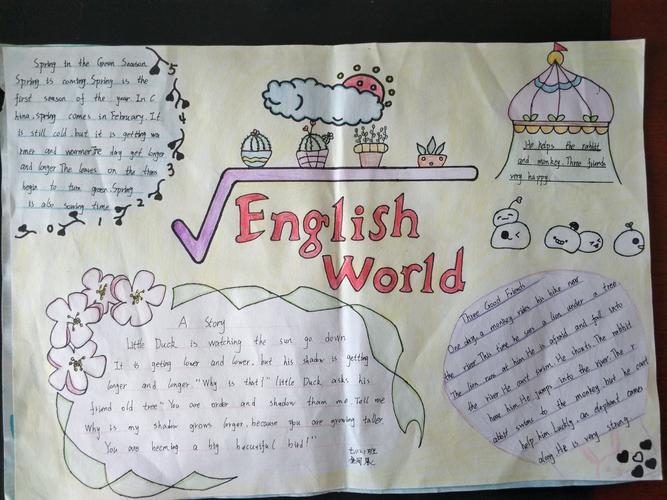 Spring in the Green Season
Spring is coming. Spring is the
first season of the year. In C
hina, spring comes in February. It
is still cold, but it is getting wa
rmer and warmer. The day get longer
and longer. The leaves on the trees
begin to turn green. Spring
is also sowing time.
5
4
3
2
1
0
English
World
He helps the rabbit
and monkey. Three friends
very happy.
A Story
Little Duck is watching the sun go down.
It is getting lower and lower, but his shadow is getting
longer and longer. "Why is that?" Little Duck asks his
friend old tree. "You are order and shadow tham me. Tell me
Why is my shadow grows longer, because you are growing taller.
You are becoming a big beautiful bird!"
Three Good Friends
One day a monkey rides his bike near
the river. This time he sees a lion under a tree
The lion runs at him. He is afraid and fall into
the river. He can't swim. He shouts. The rabbit
hears him. He jumps into the river. The r
abbit swims to the monkey, but he can't
help him. Luckily, an elephant comes
along. He is very strong.